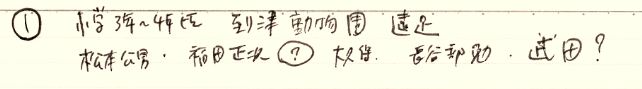 ① 小学3年〜4年生 到津動物園 遠足
松本公男・福田正次 ? 大保 長谷部勉・武田?